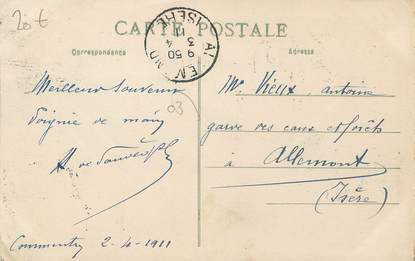 20 €
CARTE POSTALE
Correspondance
Adresse
ALLEMOND
ISÈRE
9 50
3 4
11
03
Meilleur Souvenir
Poignée de main
Mr Vieux, antoine
garde des eaux et forêts
à Allemont
(Isère)
Commentry 2-4-1911